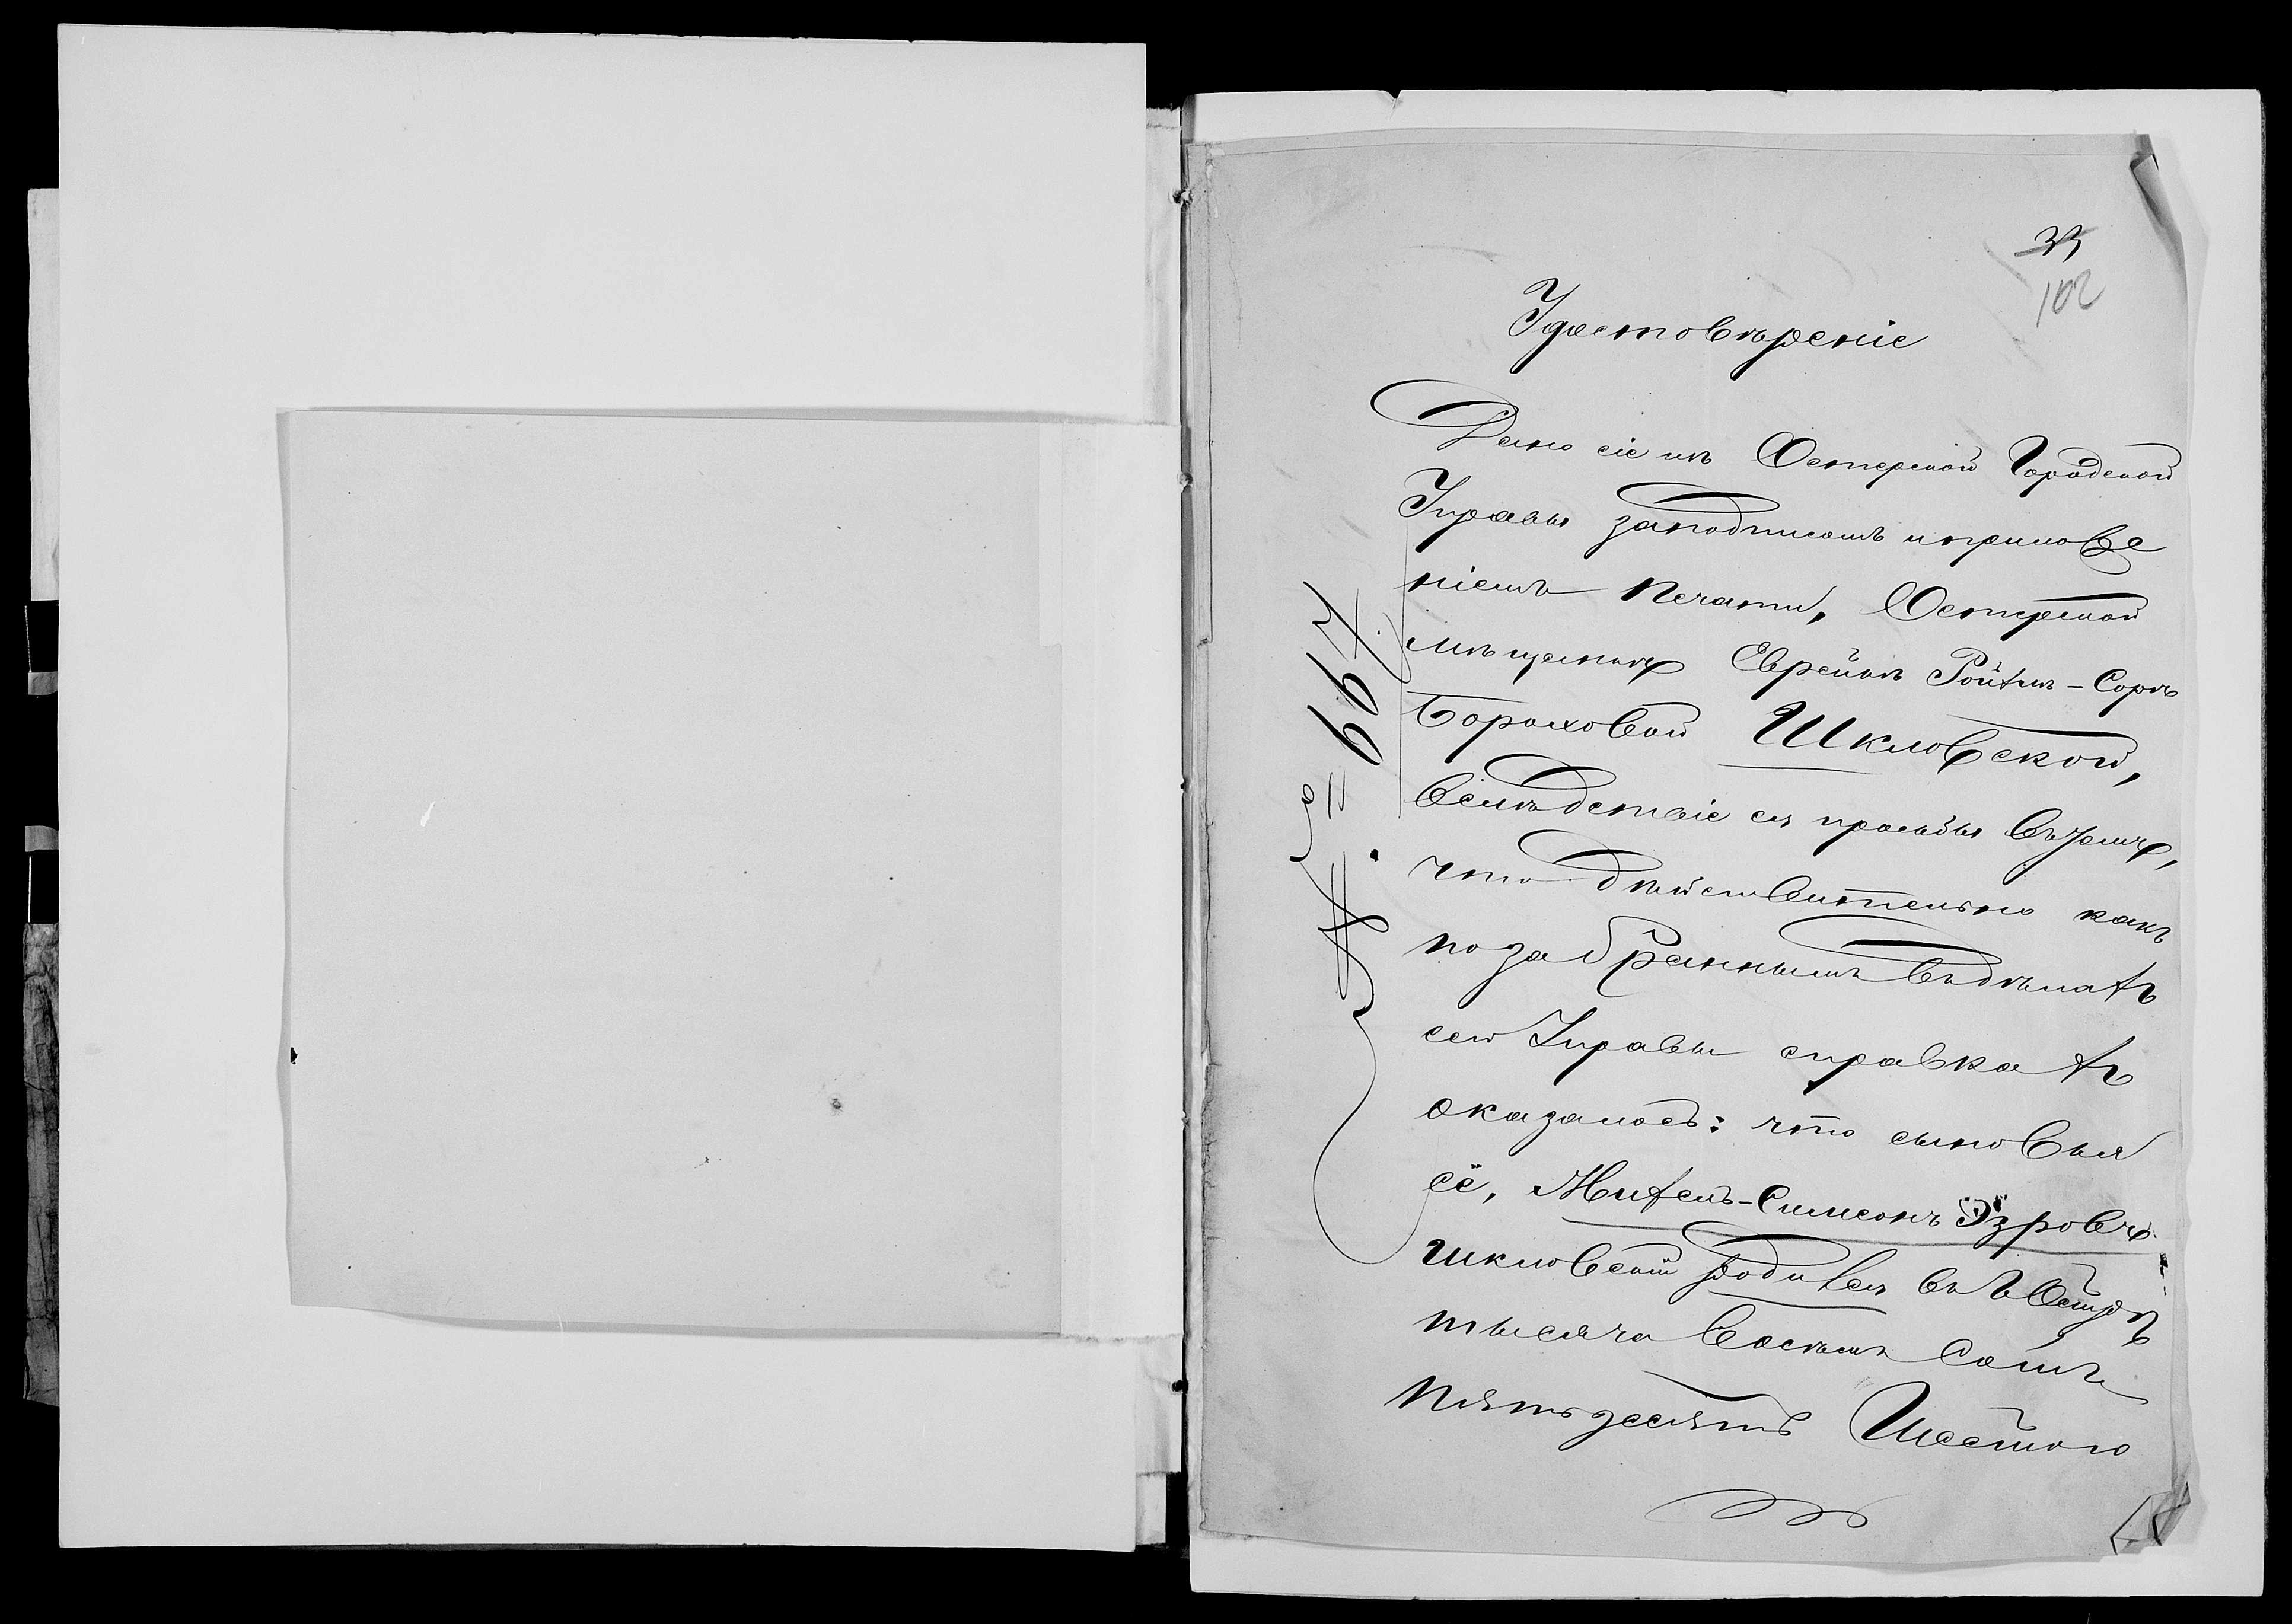 33
102
Удостовѣреніе
Дано сіе изъ Остерской Городской
Управы заподписомъ иприложе
ніемъ печати, Остерской
мѣщанкѣ Еврейкѣ Ройхлѣ-Сорѣ
Бороховой Шкловской,
Вслѣдствіе ея просьбы Вътомъ,
что дѣйствительно какъ
позабраннымъ Въдѣлахъ
сей Управы справкахъ
оказалось: что сыновья
её, Михель-Симеонъ Эзровъ
Шкловскій родился въ г. Острѣ
тысяча Восемь Сотъ
пятьдесятъ Шестого
№ 667